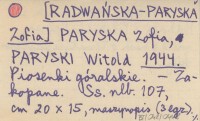 [RADWAŃSKA-PARYSKA
Zofia] PARYSKA Zofia,
PARYSKI Witold 1944.
Piosenki góralskie. – Za-
kopane. Ss. nlb. 107,
cm 20 x 15, maszynopis (3 egz.).